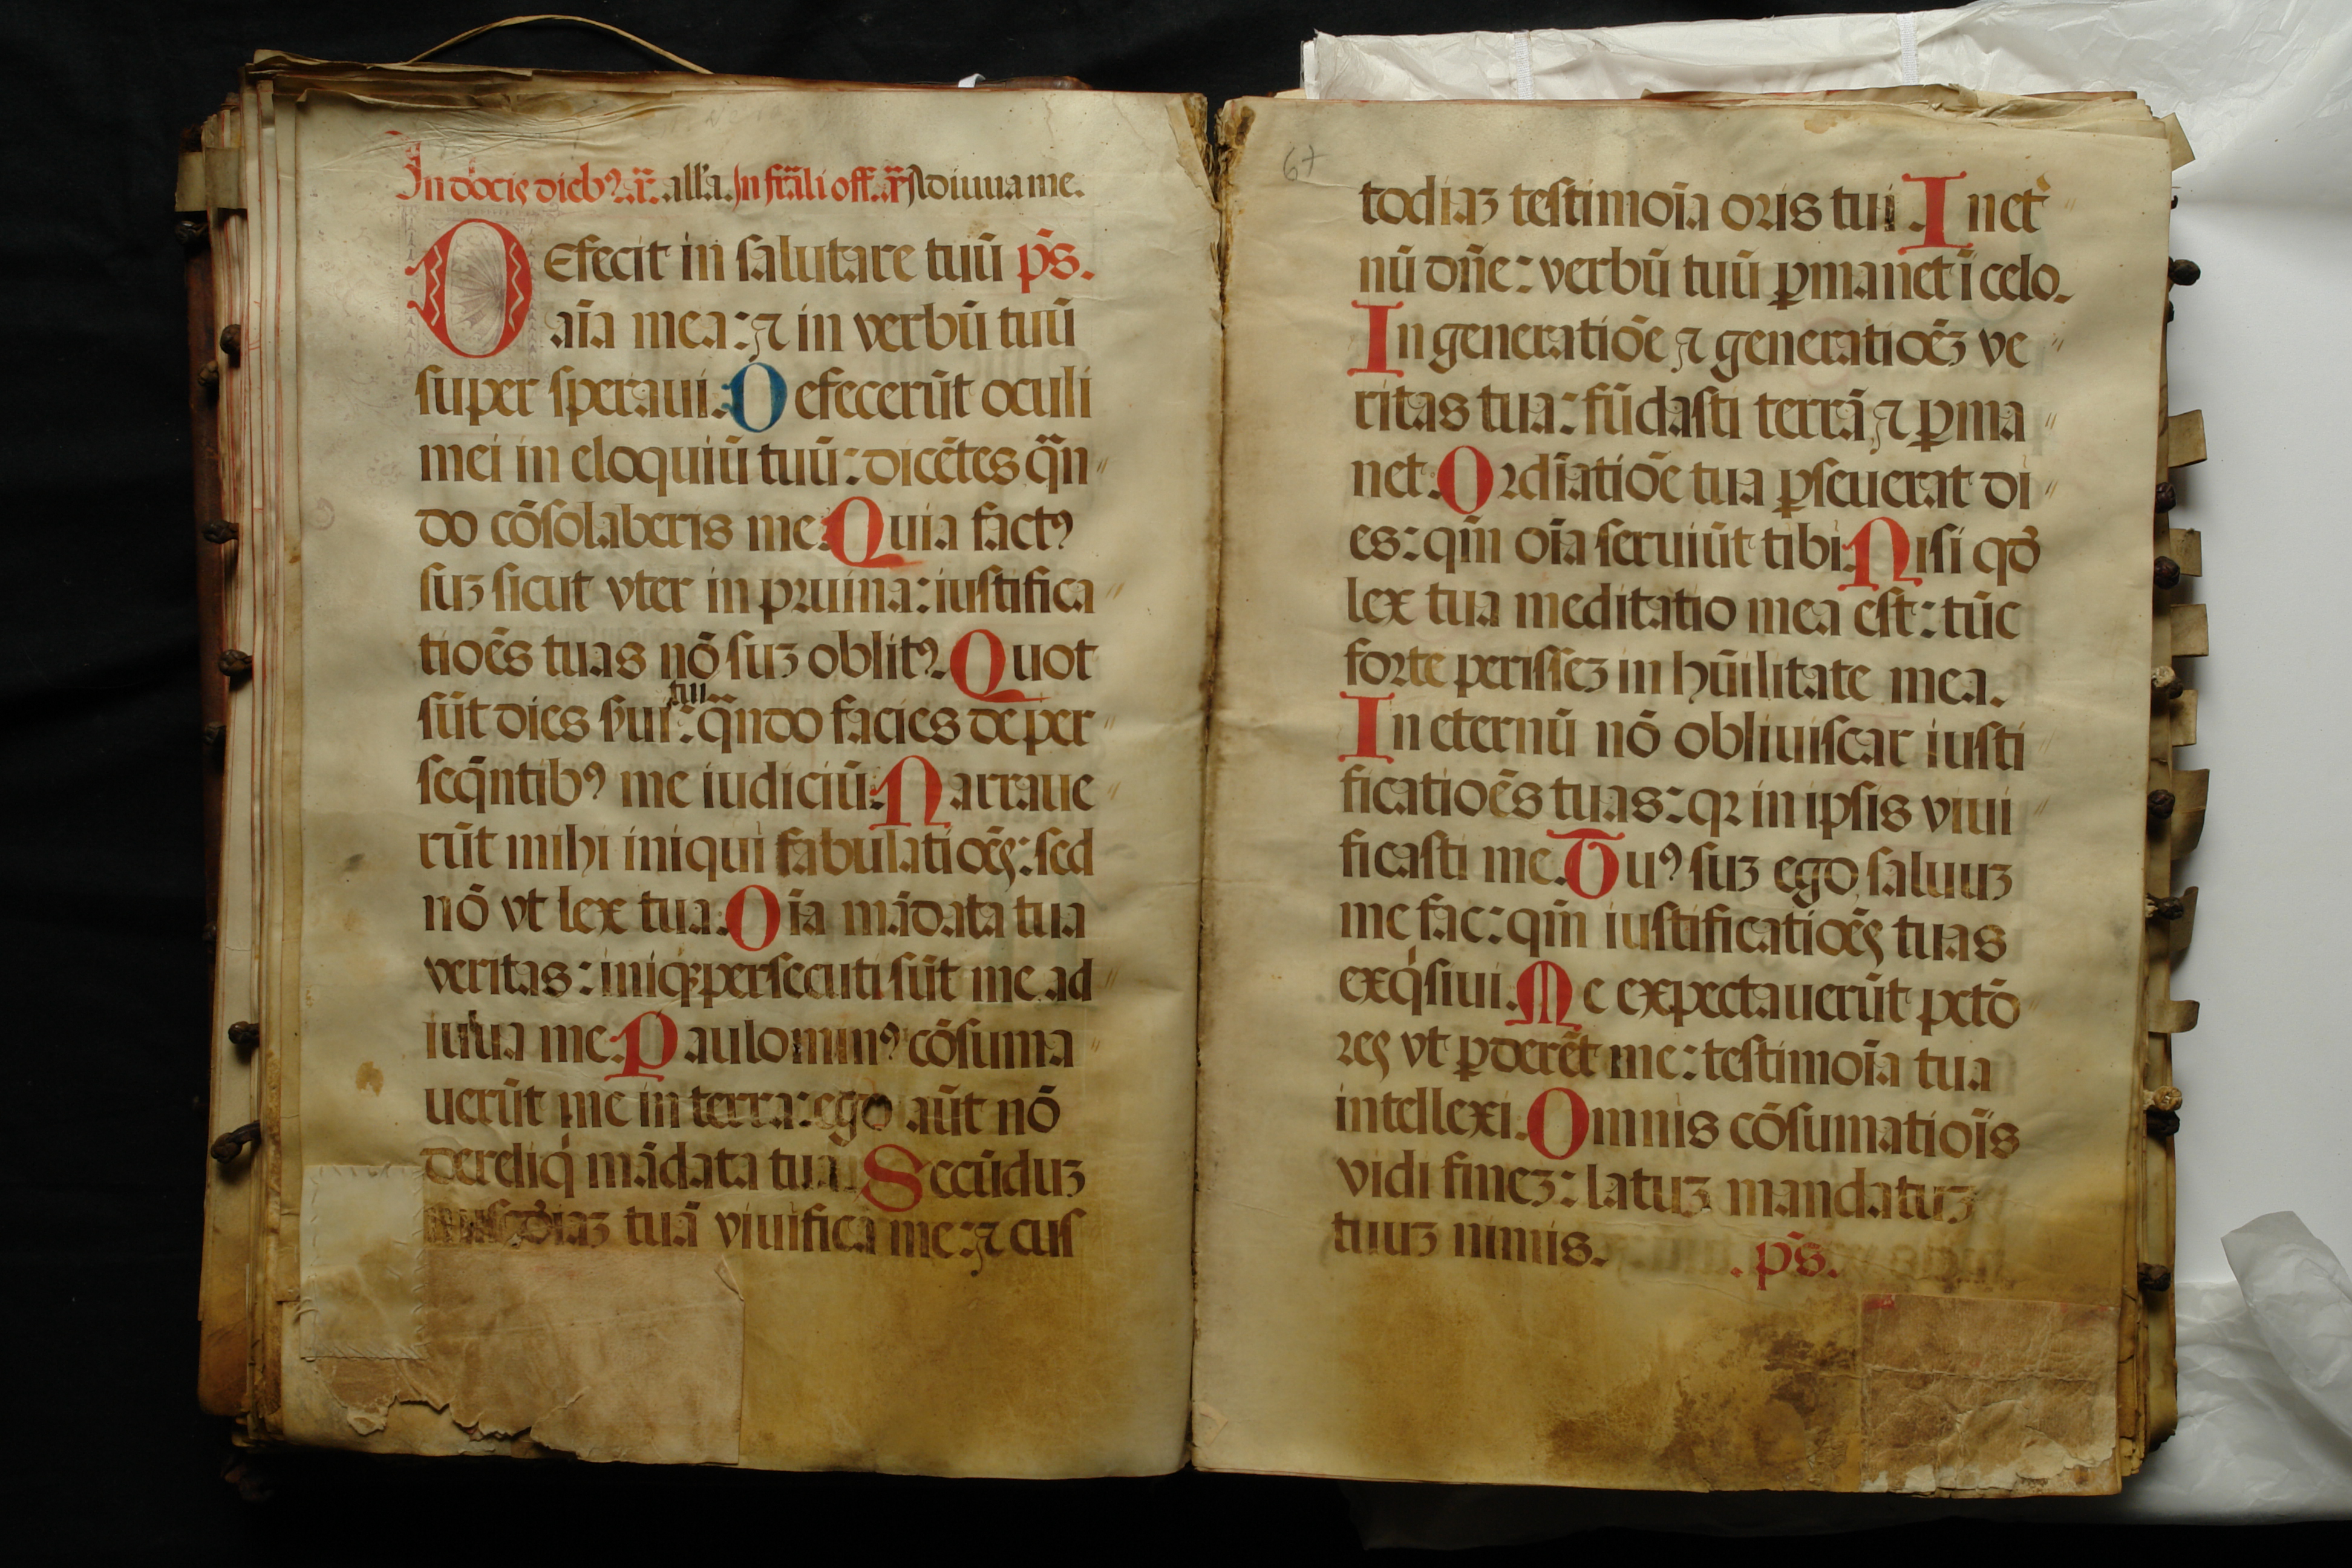 In dōcis dieb⁹.a.r̄. all'a. In fr̄ali off. a.r̄ Adiuua me.
DEfecit in salutare tuū p̄s.
aīa mea: ⁊ in verbū tuū
super speraui. Defecerūt oculi
mei in eloquiū tuū: dicētes q̄n
do cōsolaberis me. Quia fact⁹
suꝫ sicut vter in pruina: iustifica
tioēs tuas nō suꝫ oblit⁹. Quot
sūt dies ẜui tui: q̄ndo facies de per
seq̄ntib⁹ me iudiciū. Narraue
rūt mihi iniqui fabulatiōeς: sed
nō vt lex tua. Oīa mādata tua
veritas: iniq; persecuti sūt me ad
iuua me. Paulomin⁹ cōsuma
uerūt me in terra: ego aūt nō
dereliq̇ mādata tua. Secūduꝫ
tuā viuifica me: ⁊ cus
67
todiaꝫ testimoīa oris tui. In et
nū dn̄e: verbū tuū ꝑmanet ī celo.
In generatiōe ⁊ generatiōeꝫ ve
ritas tua: fūdasti terrā ⁊ ꝑma
net. Ordīatiōe tua ꝑseuerat di
es: qm̄ oīa seruiūt tibi. Nisi qđ
lex tua meditatio mea est: tūc
forte perisseꝫ in hūilitate mea.
In eternū nō obliuiscar iusti
ficatioēs tuas: qꝛ in ipsis viui
ficasti me. Tu⁹ suꝫ ego saluuꝫ
me fac: qm̄ iustificatiōeς tuas
exq̇siui. Me expectauerūt pctō
reς vt ꝑderēt me: testimoīa tua
intellexi. Omnis cōsumatioīs
vidi fineꝫ: latuꝫ mandatuꝫ
tuuꝫ nimis. .p̄s.